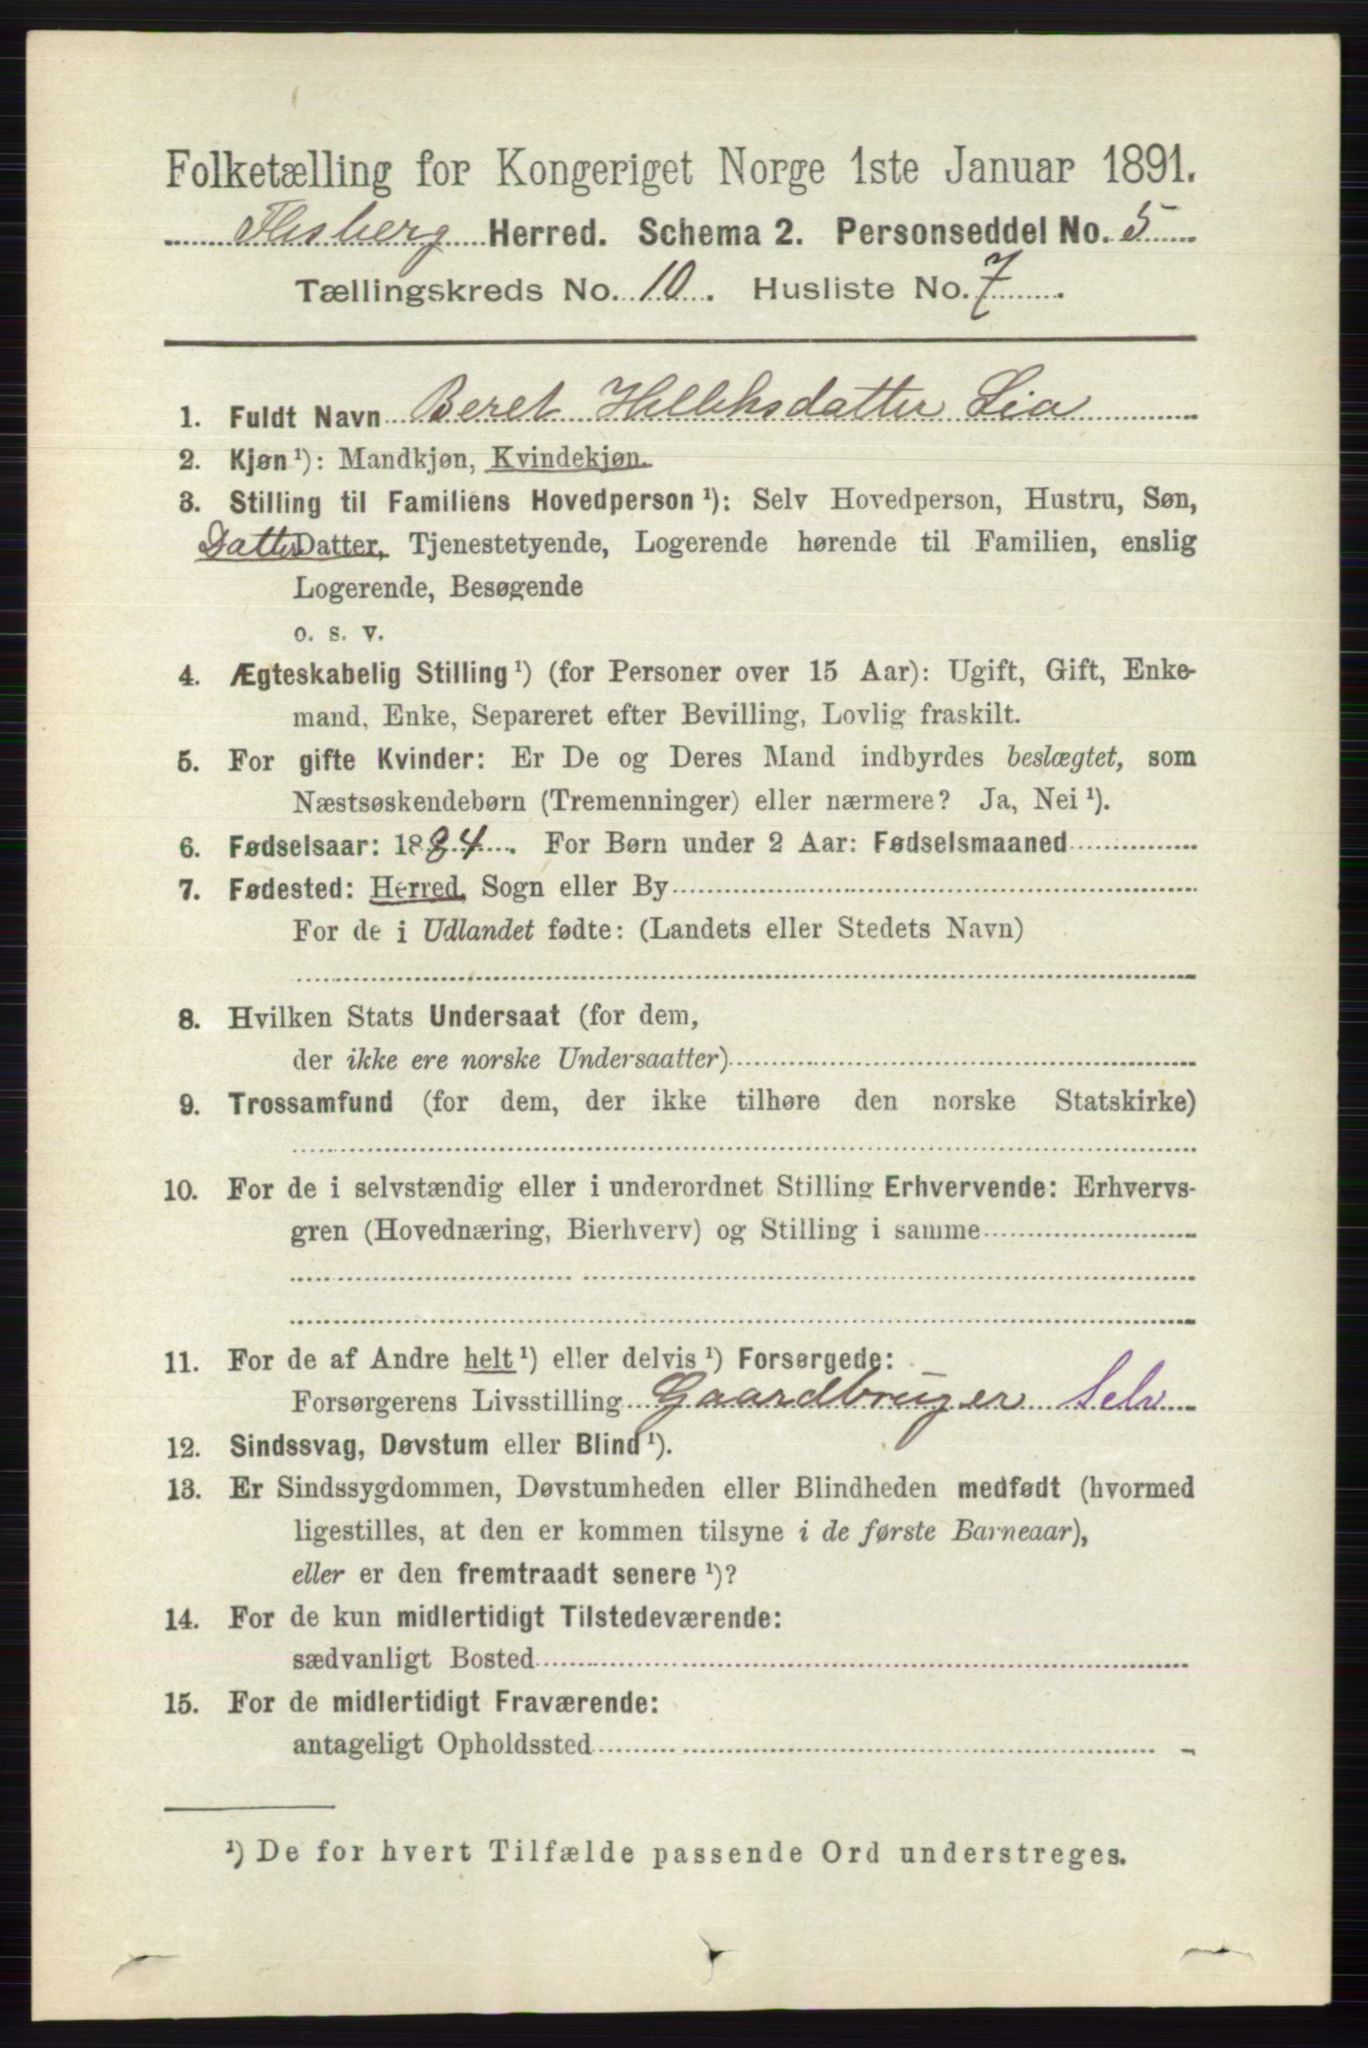 Folketælling for Kongeriget Norge 1ste Januar 1891.
Flesberg Herred. Schema 2. Personseddel No. 5
Tællingskreds No. 10. Husliste No. 7
1. Fuldt Navn Beret Helleksdatter Lia
2. Kjøn ¹): Mandkjøn, Kvindekjøn.
3. Stilling til Familiens Hovedperson ¹): Selv Hovedperson, Hustru, Søn,
Datter Datter, Tjenestetyende, Logerende hørende til Familien, enslig
Logerende, Besøgende
o. s. v.
4. Ægteskabelig Stilling ¹) (for Personer over 15 Aar): Ugift, Gift, Enke-
mand, Enke, Separeret efter Bevilling, Lovlig fraskilt.
5. For gifte Kvinder: Er De og Deres Mand indbyrdes beslægtet, som
Næstsøskendebørn (Tremenninger) eller nærmere? Ja, Nei ¹).
6. Fødselsaar: 1884. For Børn under 2 Aar: Fødselsmaaned
7. Fødested: Herred, Sogn eller By
For de i Udlandet fødte: (Landets eller Stedets Navn)
8. Hvilken Stats Undersaat (for dem,
der ikke ere norske Undersaatter)
9. Trossamfund (for dem, der ikke tilhøre den norske Statskirke)
10. For de i selvstændig eller i underordnet Stilling Erhvervende: Erhvervs-
gren (Hovednæring, Bierhverv) og Stilling i samme
11. For de af Andre helt ¹) eller delvis ¹) Forsørgede:
Forsørgerens Livsstilling Gaardbruger Selv
12. Sindssvag, Døvstum eller Blind ¹).
13. Er Sindssygdommen, Døvstumheden eller Blindheden medfødt (hvormed
ligestilles, at den er kommen tilsyne i de første Barneaar),
eller er den fremtraadt senere ¹)?
14. For de kun midlertidigt Tilstedeværende:
sædvanligt Bosted
15. For de midlertidigt Fraværende:
antageligt Opholdssted
¹) De for hvert Tilfælde passende Ord understreges.